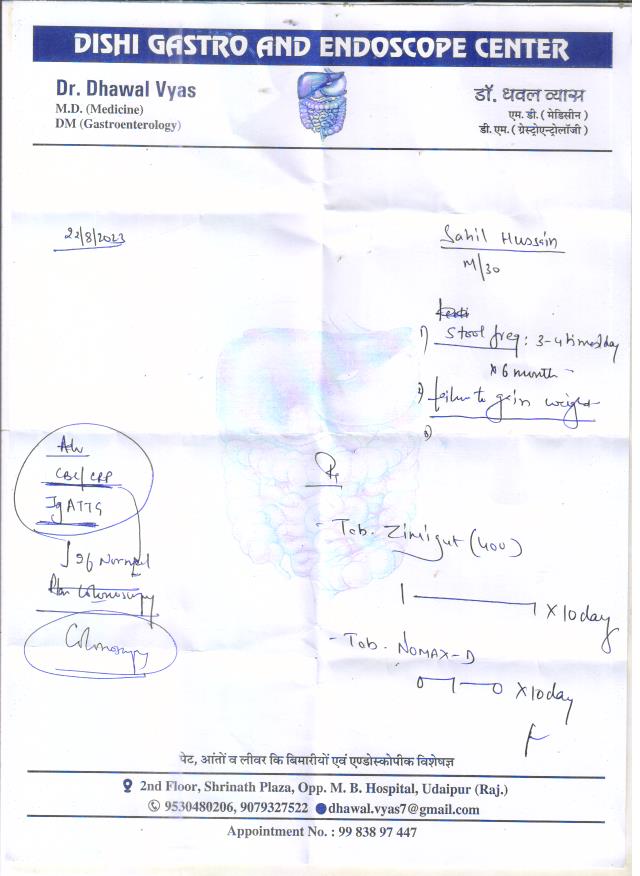 DISHI GASTRO AND ENDOSCOPE CENTER
Dr. Dhawal Vyas
M.D. (Medicine)
DM (Gastroenterology)
डॉ. धवल व्यास
एम. डी. ( मेडिसीन )
डी. एम. ( गेस्ट्रोएन्ट्रोलॉजी )
22/8/2023
Sahil Hussain
M/30
1) Stool freq : 3-4 times/day
x 6 month
2) failure to gain weight
3)
Adv
CBC/CRP
IgATTG
If Normal
Plan Colonoscopy
Colonoscopy
Rx
- Tab. Zimigut (400)
1 — 1 x 10 day
- Tab. NOMAX-D
0 — 1 — 0 x 10 day
पेट, आंतों व लीवर कि बिमारीयों एवं एण्डोस्कोपीक विशेषज्ञ
2nd Floor, Shrinath Plaza, Opp. M. B. Hospital, Udaipur (Raj.)
9530480206, 9079327522 dhawal.vyas7@gmail.com
Appointment No. : 99 838 97 447